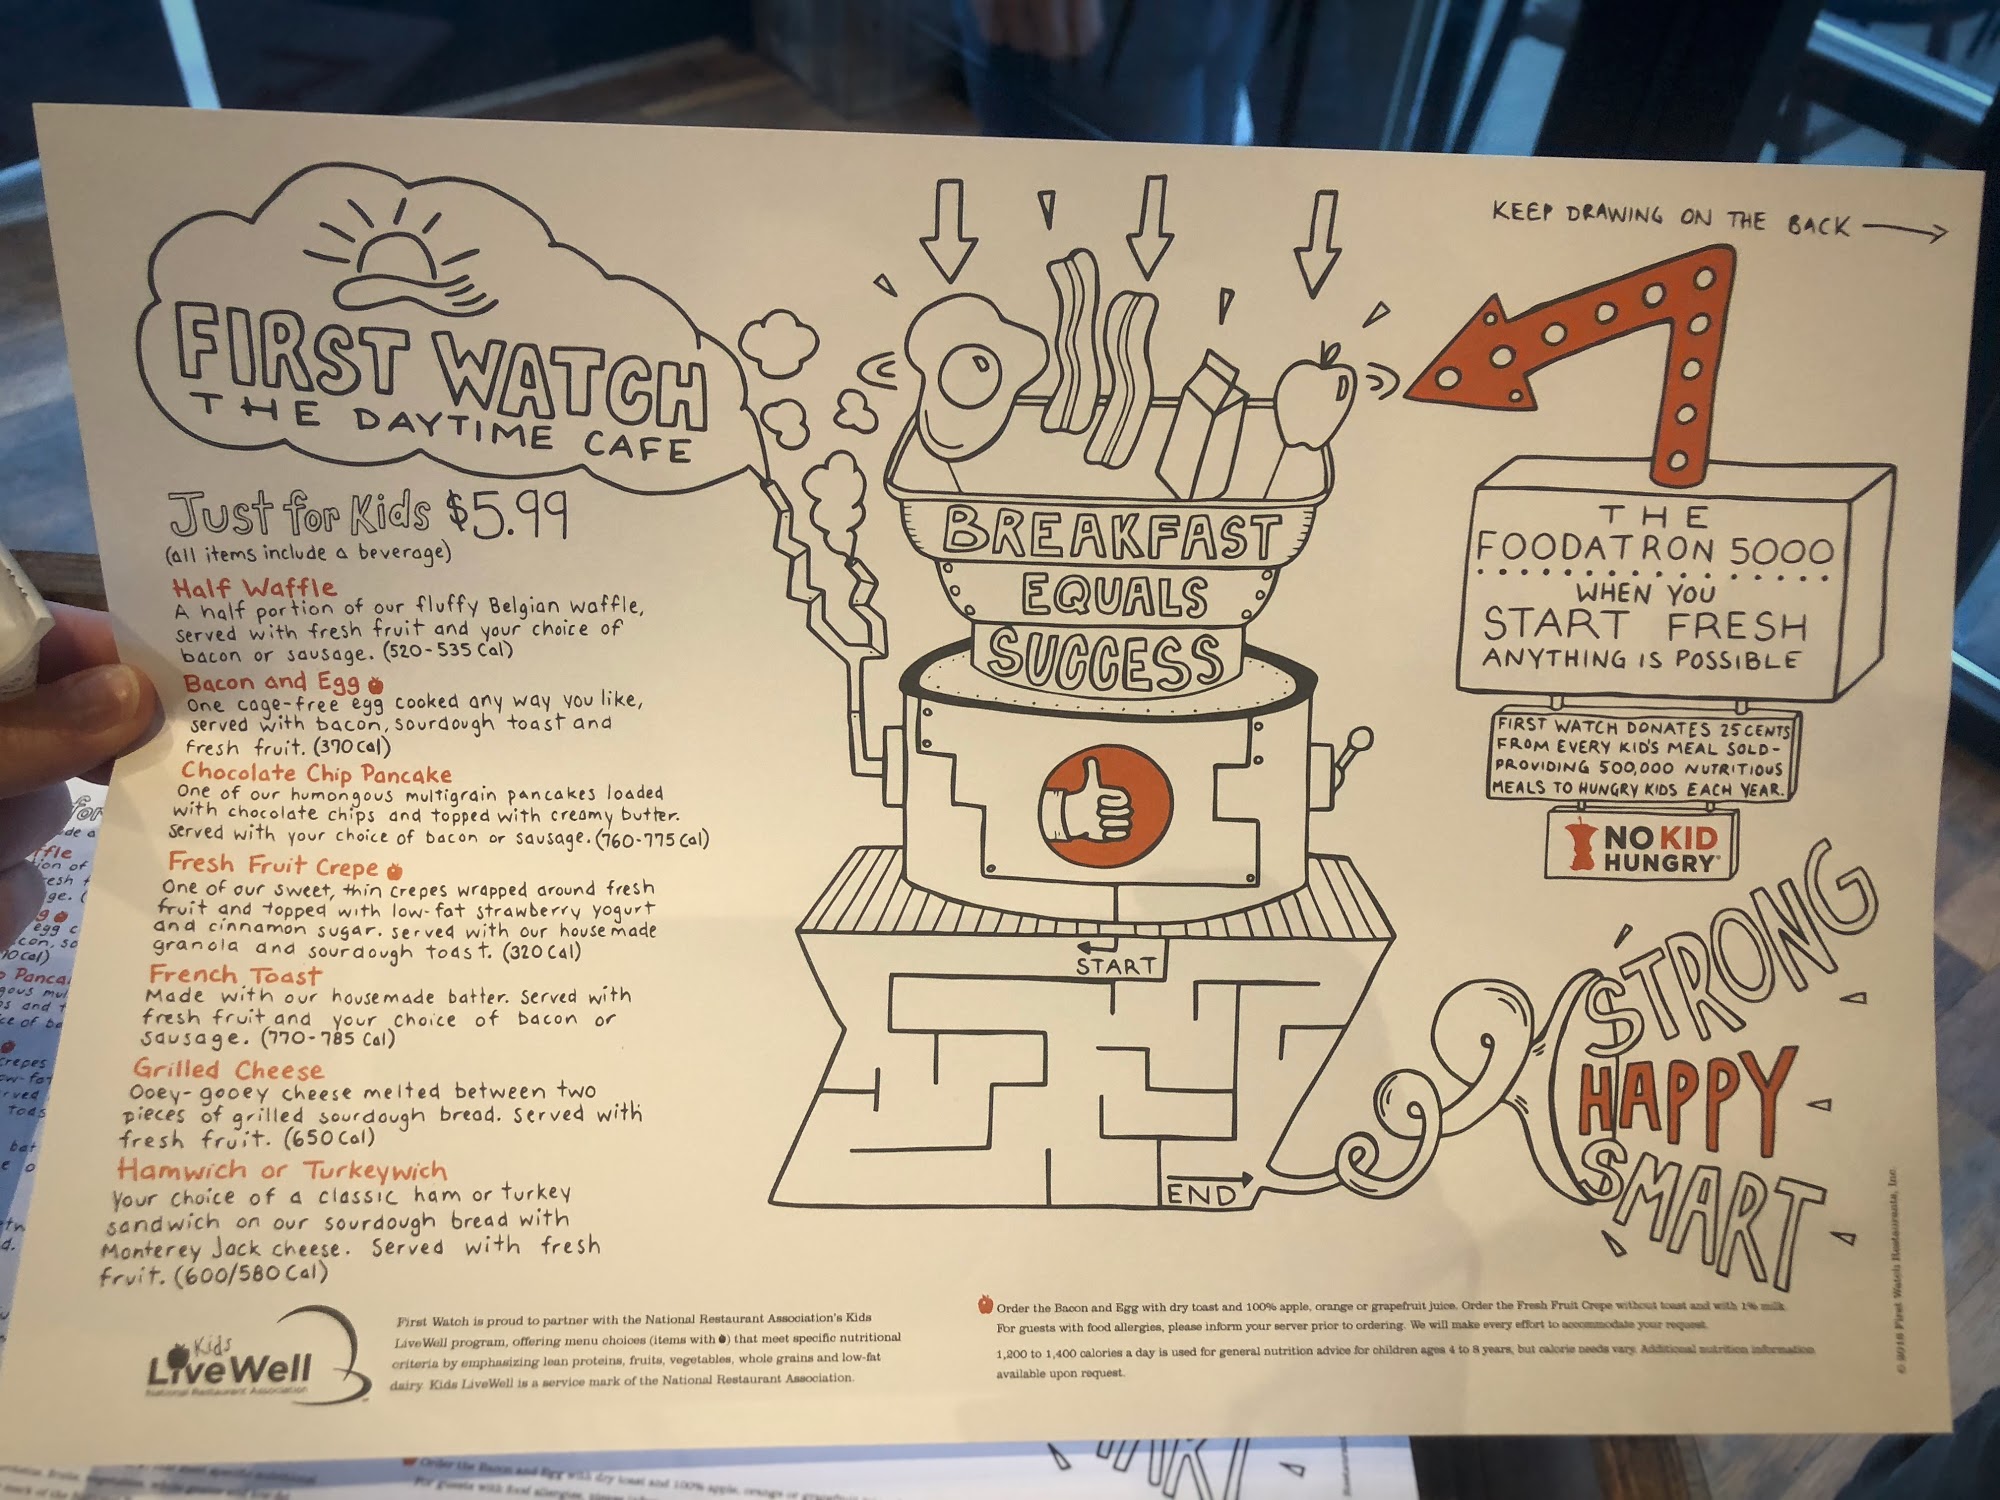 FIRST WATCH
THE DAYTIME CAFE
Just for Kids $5.99
(all items include a beverage)
Half Waffle
A half portion of our fluffy Belgian waffle,
served with fresh fruit and your choice of
bacon or sausage. (520-535 Cal)
Bacon and Egg
One cage-free egg cooked any way you like,
served with bacon, sourdough toast and
fresh fruit. (370 Cal)
Chocolate Chip Pancake
One of our humongous multigrain pancakes loaded
with chocolate chips and topped with creamy butter.
Served with your choice of bacon or sausage. (760-775 Cal)
Fresh Fruit Crepe
One of our sweet, thin crepes wrapped around fresh
fruit and topped with low-fat strawberry yogurt
and cinnamon sugar. Served with our housemade
granola and sourdough toast. (320 Cal)
French Toast
Made with our housemade batter. Served with
fresh fruit and your choice of bacon or
sausage. (770-785 Cal)
Grilled Cheese
Ooey-gooey cheese melted between two
pieces of grilled sourdough bread. Served with
fresh fruit. (650 Cal)
Hamwich or Turkeywich
Your choice of a classic ham or turkey
sandwich on our sourdough bread with
Monterey Jack cheese. Served with fresh
fruit. (600/580 Cal)
Kids
LiveWell
National Restaurant Association
First Watch is proud to partner with the National Restaurant Association's Kids
LiveWell program, offering menu choices (items with ) that meet specific nutritional
criteria by emphasizing lean proteins, fruits, vegetables, whole grains and low-fat
dairy. Kids LiveWell is a service mark of the National Restaurant Association.
BREAKFAST
EQUALS
SUCCESS
START
END
KEEP DRAWING ON THE BACK
THE
FOODATRON 5000
WHEN YOU
START FRESH
ANYTHING IS POSSIBLE
FIRST WATCH DONATES 25 CENTS
FROM EVERY KID'S MEAL SOLD-
PROVIDING 500,000 NUTRITIOUS
MEALS TO HUNGRY KIDS EACH YEAR.
NO KID
HUNGRY
STRONG
HAPPY
SMART
Order the Bacon and Egg with dry toast and 100% apple, orange or grapefruit juice. Order the Fresh Fruit Crepe without toast and with 1% milk.
For guests with food allergies, please inform your server prior to ordering. We will make every effort to accommodate your request.
1,200 to 1,400 calories a day is used for general nutrition advice for children ages 4 to 8 years, but calorie needs vary. Additional nutrition information
available upon request.
© 2018 First Watch Restaurants, Inc.